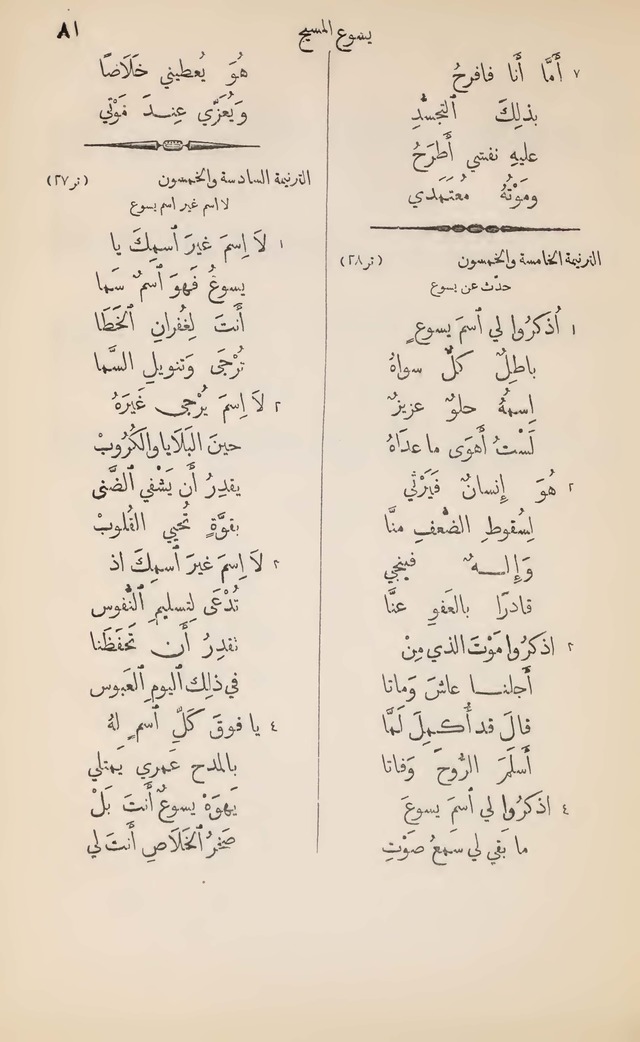 يسوع المسيح
٨١
٧ أَمَّا أَنا فافرحُ
بذلِكَ ٱلتجسُّدِ
عليهِ نفسي أَطرَحُ
ومَوْتُهُ معُتَمَدي
الترنيمة الخامسة والخمسون (تر ٢٨)
حدّث عن يسوع
١ أُذكرُوا لي ٱسمَ يسوعٍ
باطِلٌ كلٌّ سواهُ
اِسمُهُ حلوٌ عزيزٌ
لَسْتُ أَهوَى ما عدَاهُ
٢ هُوَ إِنسانٌ فَيَرْثي
لِسُقوطِ الضُّعفِ منَّا
وَإِلــهٌ فينجي
قادرًا بالعَفوِ عنَّا
٣ اذكرُوا مَوْتَ الذي مِنْ
أَجلنــا عاشَ وَماتا
قالَ قد أُكــمِلَ لَمَّا
أَسلَمَ الرُّوحَ وَفاتا
٤ اذكرُوا لي ٱسمَ يسوعَ
ما بَقي لي سَمعُ صَوْتِ
هُوَ يُعطيني خَلَاصًا
وَيُعَزّي عِنــدَ مَوْتي
الترنيمة السادسة والخمسون (تر ٢٧)
لا اسم غير اسم يسوع
١ لاَ اِسمَ غَيرَ ٱسمِكَ يا
يسوعُ فَهوَ ٱسمٌ سَما
أَنتَ لِغُفرانِ ٱلخَطَا
تُرْجَى وَتنويلِ السَّما
٢ لاَ اِسمَ يُرْجى غَيرَهُ
حينَ البَلَايا والكُرُوبْ
يقدِرُ أَن يَشْفي ٱلضَّنى
بقوَّةٍ تُحيي القُلوبْ
٣ لاَ اِسمَ غَيرَ ٱسمِكَ اذ
تُدْعَى لِتسليمِ ٱلنُّفوس
نقدِرُ أَن تَحفَظَنا
في ذلِكَ ٱليومِ ٱلعَبوس
٤ يا فوقَ كَلِّ ٱسمٍ لهُ
بالمدح عَمري يَمتلي
يَهوَهْ يسوعٌ أَنتَ بَلْ
صَخرُ ٱلخَلَاصِ أَنتَ لي